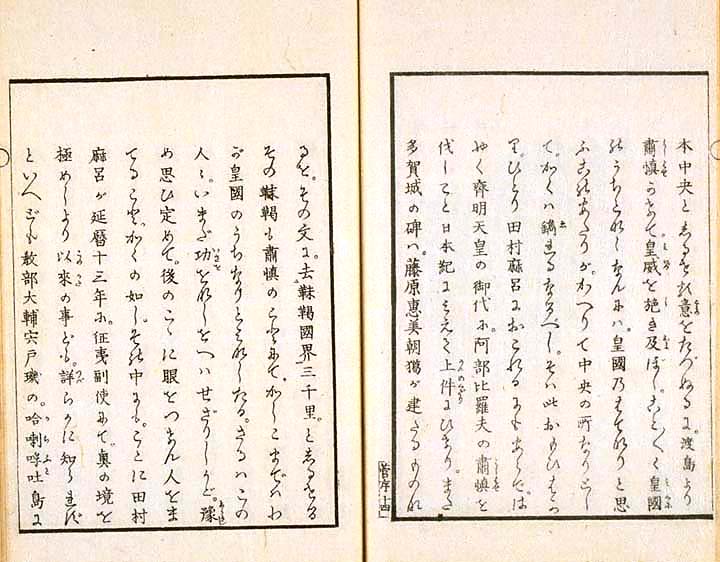 本中央としるせる意をたづぬるに。渡島より
肅慎かけて皇威を施き及ぼし。ことごとく皇國
のうちとなしなんにハ。皇國乃はてなりと思
ふこのあたりが。かへりて中央の所なりとし
て。かくハ鐫れるなるべし。そハ此おもひはかり
ひとり田村麻呂におこれるにもあらで。は
やく齊明天皇の御代に。阿部比羅夫の肅慎を
伐しこと日本紀にみえて上件にひけり。また
多賀城の碑ハ。藤原惠美朝獦が建たるものな
菅序十四
るを。その文に。去靺鞨國界三千里。としるせる
その靺鞨も肅慎のことにて。かしこまでハわ
が皇國のうちなりとみなしたる。さるハこの
人々。いまだ功をなしをへハせざりしかど。豫
め思ひ定めて。後のこゝに眼をつけん人をま
てること。かくの如し。その中にも。ことに田村
麻呂が延暦十三年に。征夷副使にて。奥の境を
極めしより以來の事ども。詳らかに知られず
といへども。教部大輔宍戸璣の。哈喇哼吐島に